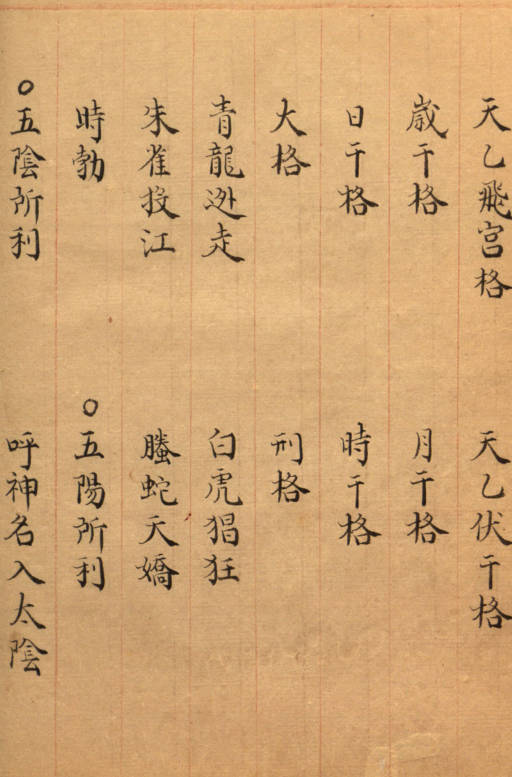 天乙飛宮格　天乙伏干格
歳干格　月干格
日干格　時干格
大格　刑格
青龍迯走　白虎猖狂
朱雀投江　螣蛇天嬌
時勃　○五陽所利
○五陰所利　呼神名入太陰